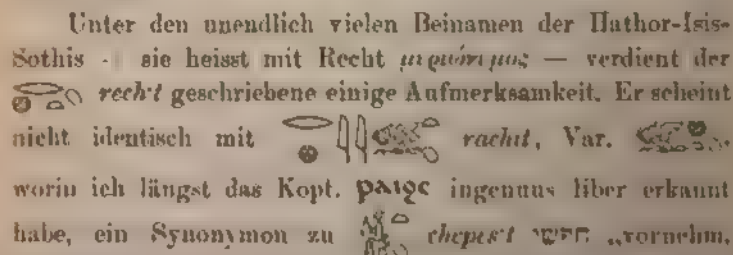 Unter den unendlich vielen Beinamen der Hathor-Isis-
Sothis — sie heisst mit Recht μυριώνυμος — verdient der
rech·t geschriebene einige Aufmerksamkeit. Er scheint
nicht identisch mit rachit, Var.
worin ich längst das Kopt. ⲣⲁⲓϩⲉ ingenuus liber erkannt
habe, ein Synonymon zu chepes·t „vornehm,